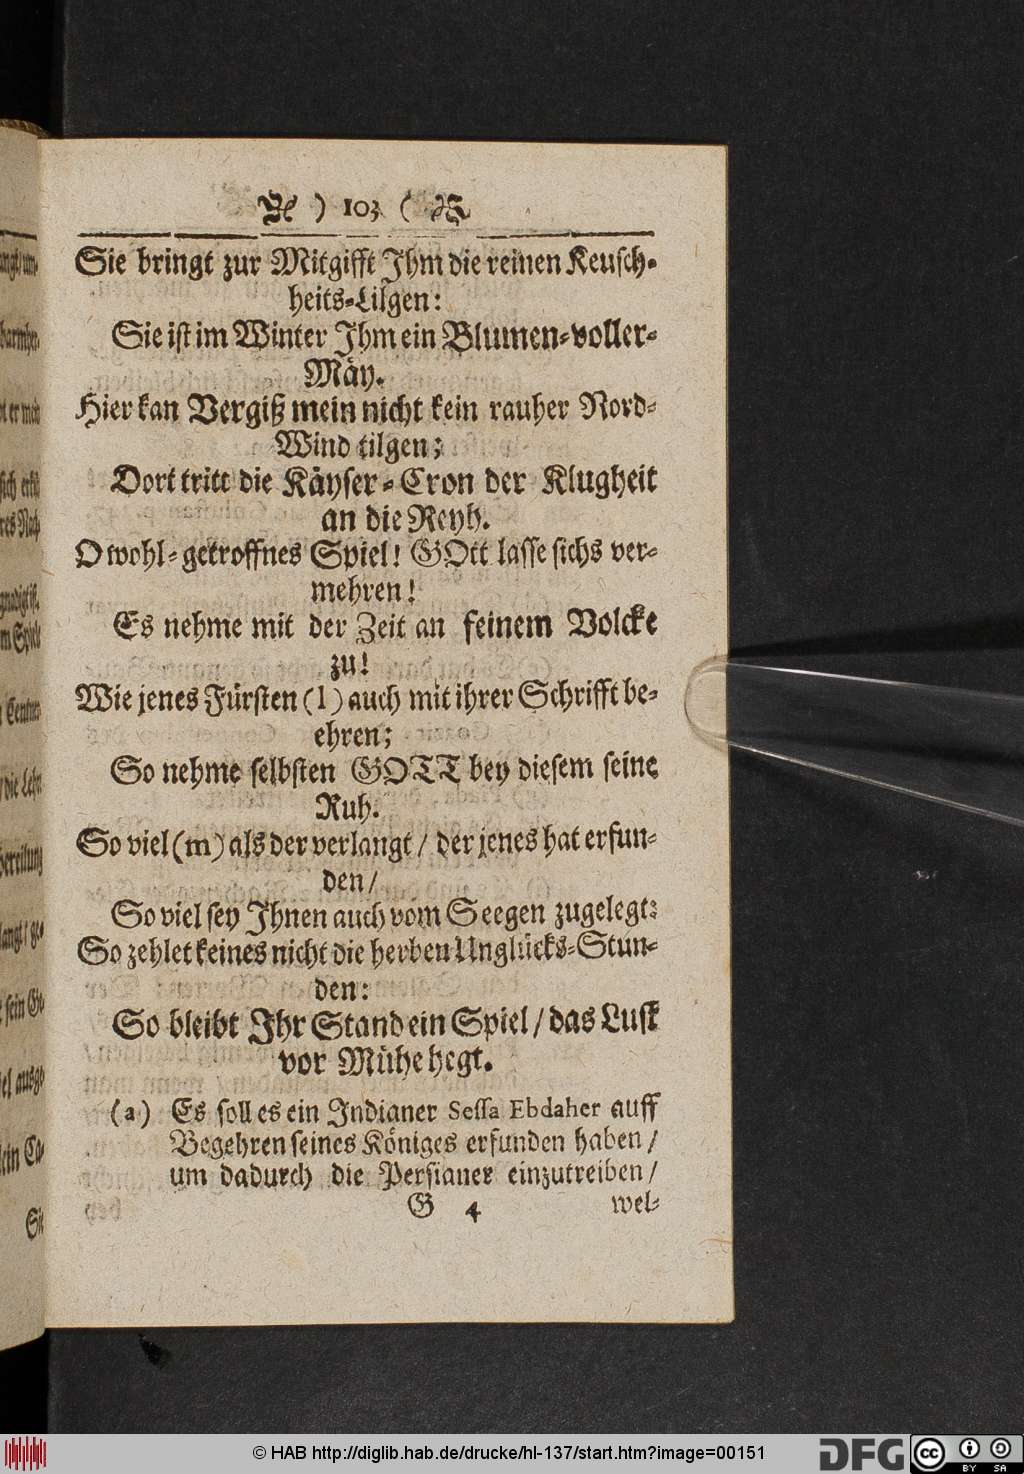 ) 103 (
Sie bringt zur Mitgifft Jhm die reinen Keusch-
heits-Lilgen:
Sie ist im Winter Jhm ein Blumen-voller-
Mäy.
Hier kan Vergiß mein nicht kein rauher Nord-
Wind tilgen;
Dort tritt die Käyser-Cron der Klugheit
an die Reyh.
O wohl-getroffnes Spiel! GOtt lasse sichs ver-
mehren!
Es nehme mit der Zeit an feinem Volcke
zu!
Wie jenes Fürsten (l) auch mit ihrer Schrifft be-
ehren;
So nehme selbsten GOTT bey diesem seine
Ruh.
So viel (m) als der verlangt / der jenes hat erfun-
den /
So viel sey Jhnen auch vom Seegen zugelegt:
So zehlet keines nicht die herben Unglücks-Stun-
den:
So bleibt Jhr Stand ein Spiel / das Lust
vor Mühe hegt.
(a) Es soll es ein Jndianer Sessa Ebdaher auff
Begehren seines Königes erfunden haben /
um dadurch die Persianer einzutreiben /
G 4 wel-
© HAB http://diglib.hab.de/drucke/hl-137/start.htm?image=00151
DFG
cc BY SA